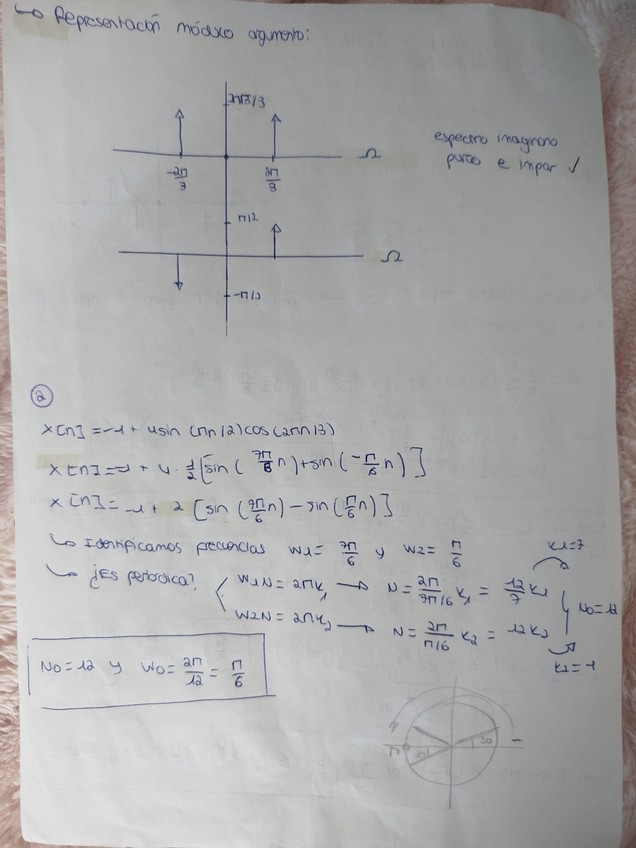 ↳ Representación módulo argumento:
2π√3/3
espectro imaginario
puro e impar ✓
Ω
-2π/3 2π/3
π/2
Ω
-π/2
②
x[n] = -1 + 4sin(πn/2)cos(2πn/3)
x[n] = -1 + 4 · 1/2 [sin(7π/6 n) + sin(-π/6 n)]
x[n] = -1 + 2 [sin(7π/6 n) - sin(π/6 n)]
↳ Identificamos frecuencias W1 = 7π/6 y W2 = π/6
K1=7
↳ ¿Es periódica? W1N = 2πK1 → N = 2π/7π/6 K1 = 12/7 K1
N0=12
W2N = 2πK2 → N = 2π/π/6 K2 = 12K2
K2=1
N0=12 y W0 = 2π/12 = π/6
π 30° 30